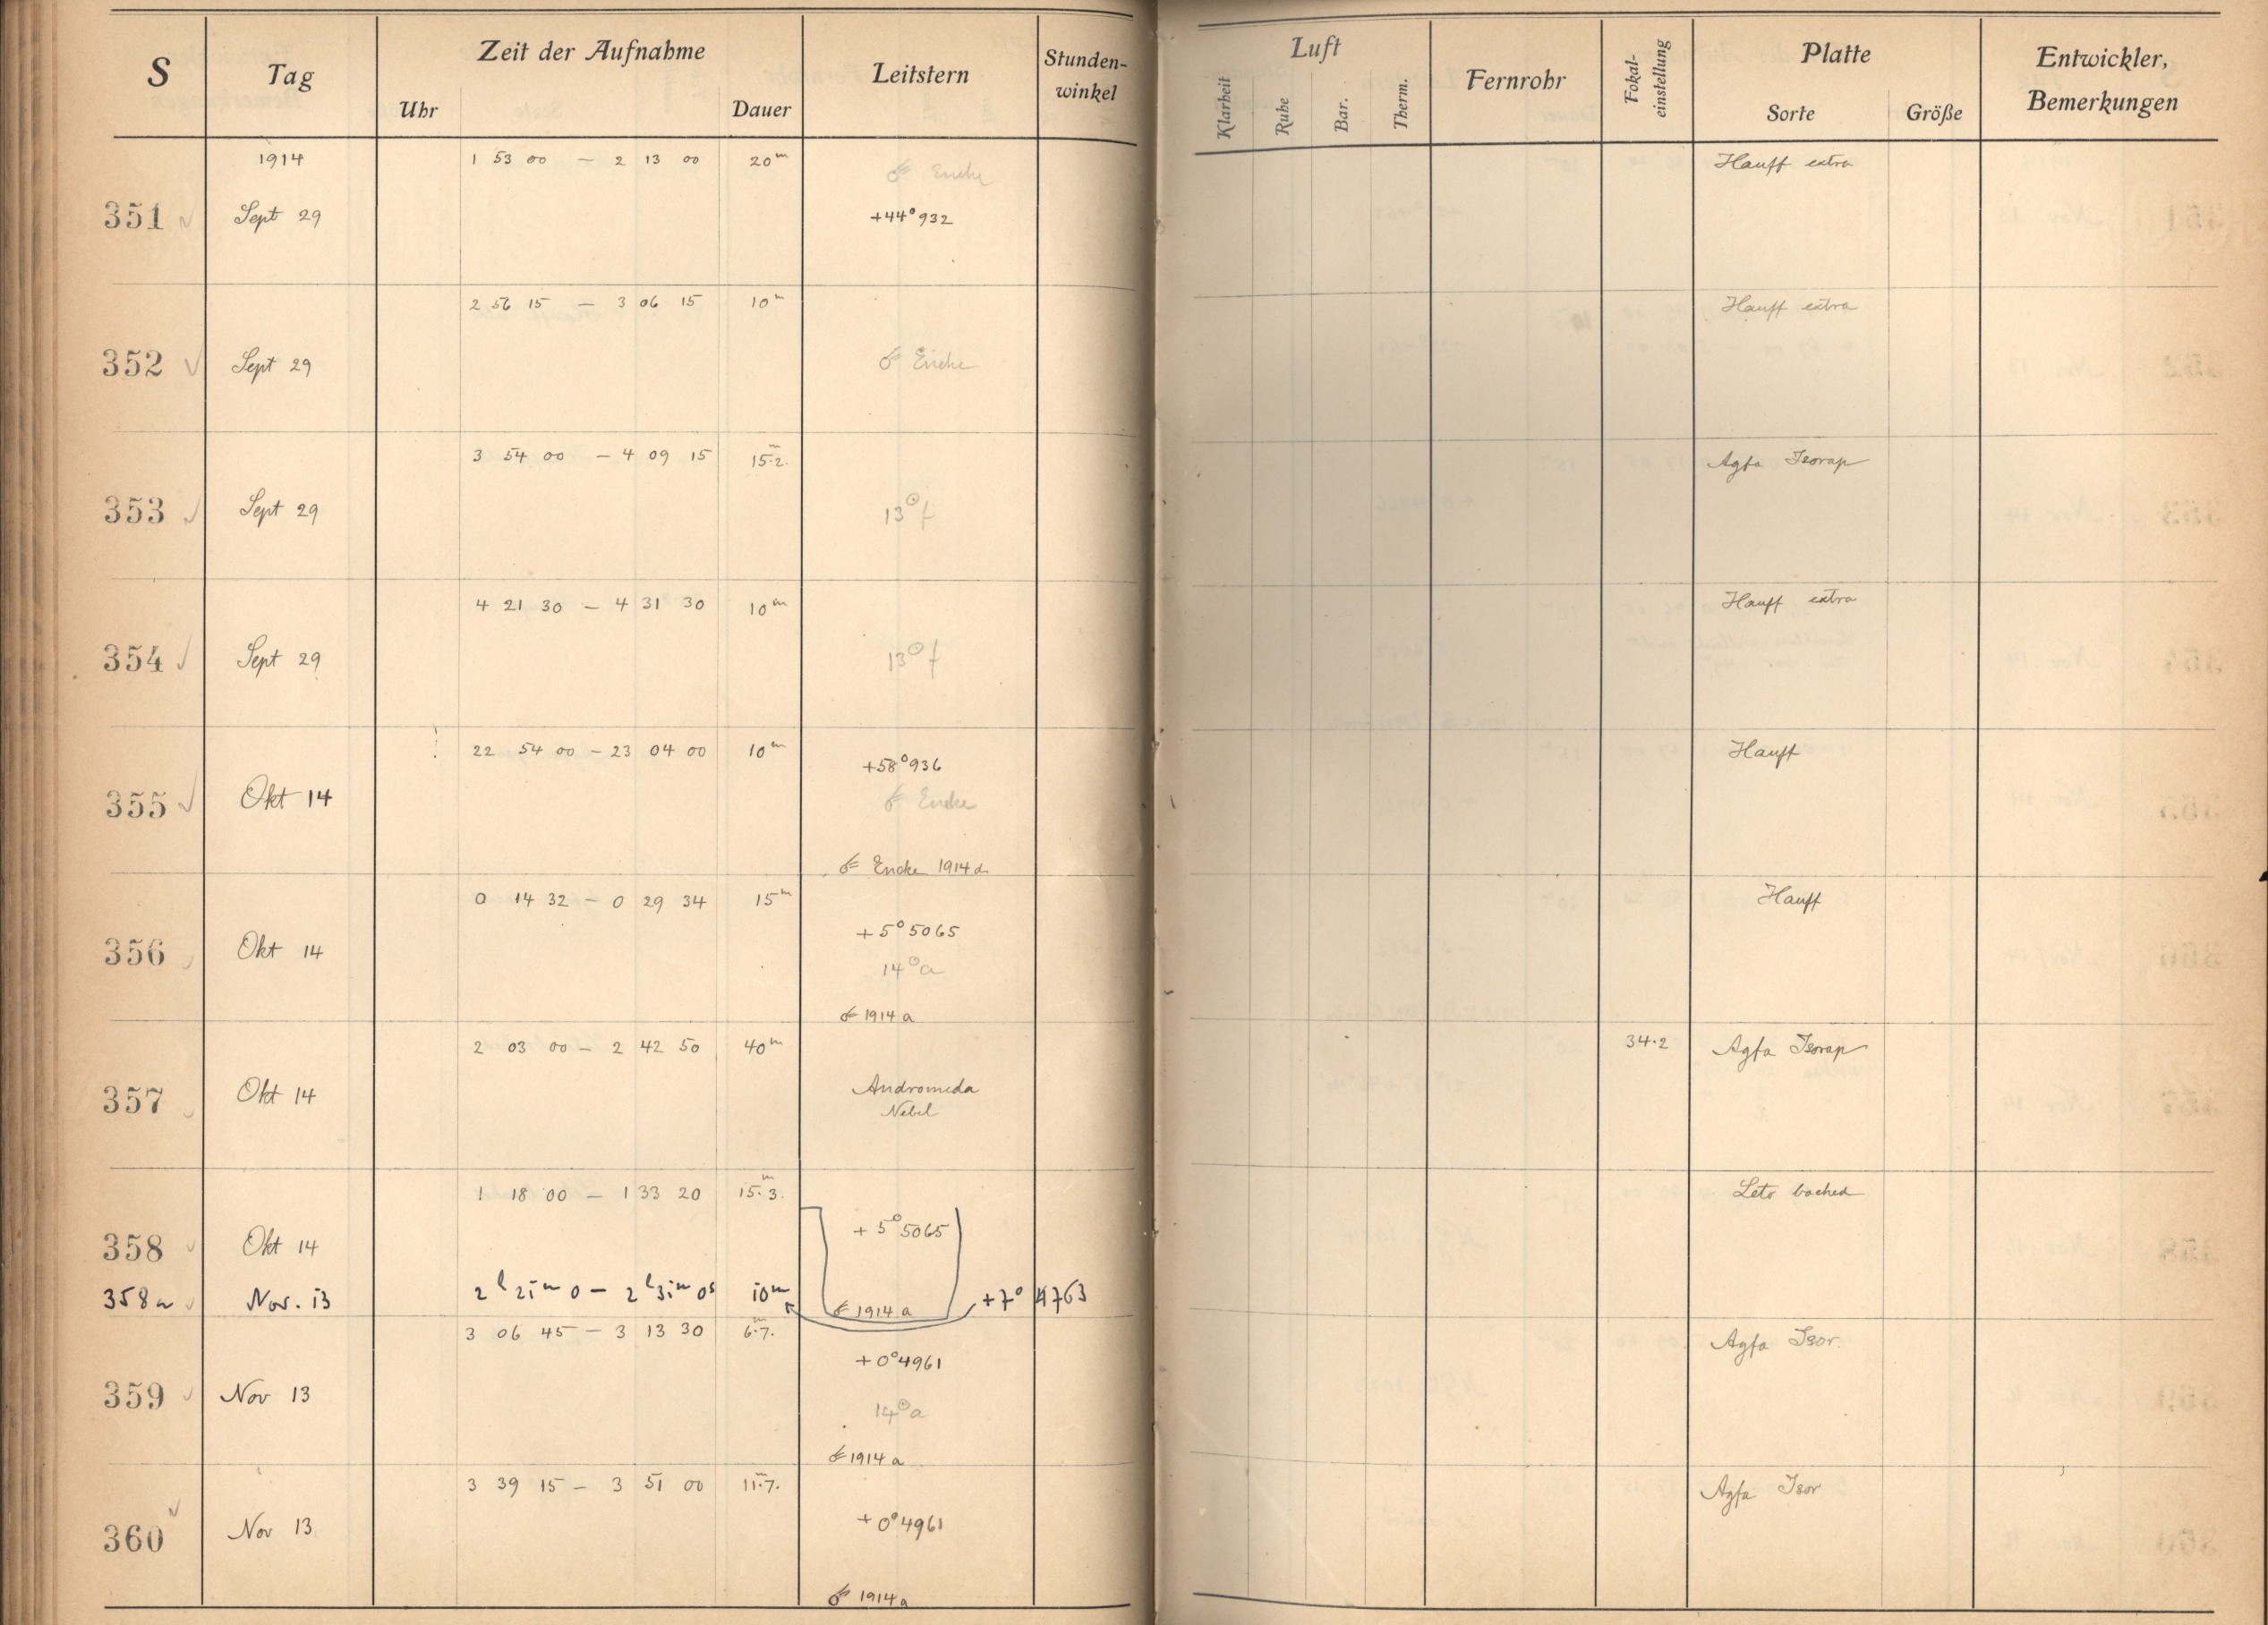 S Tag Zeit der Aufnahme Uhr Dauer Leitstern Stunden-winkel Luft Klarheit Ruhe Bar. Therm. Fernrohr Fokal-einstellung Platte Sorte Größe Entwickler, Bemerkungen
1914 1 53 00 – 2 13 00 20m ☄ Encke Hauff extra
351 Sept 29 +44°932
2 56 15 – 3 06 15 10m Hauff extra
352 Sept 29 ☄ Encke
3 54 00 – 4 09 15 15m.2. Agfa Isorap
353 Sept 29 13☉f
4 21 30 – 4 31 30 10m Hauff extra
354 Sept 29 13☉f
22 54 00 – 23 04 00 10m Hauff
+58°936
355 Okt 14 ☄ Encke
☄ Encke 1914 d
0 14 32 – 0 29 34 15m Hauff
+5°5065
356 Okt 14 14☉a
☄ 1914 a
2 03 00 – 2 42 50 40m 34.2 Agfa Isorap
357 Okt 14 Andromeda
Nebel
1 18 00 – 1 33 20 15m.3.
358 Okt 14 +5°5065
358a Nov. 13 2h 21m 0 – 2h 31m 0s 10m ☄ 1914 a +7° 4763
3 06 45 – 3 13 30 6m.7. Agfa Isor.
+0°4961
359 Nov 13 14☉a
☄ 1914 a
3 39 15 – 3 51 00 11m.7. Agfa Isor
360 Nov 13 +0°4961
☄ 1914 a